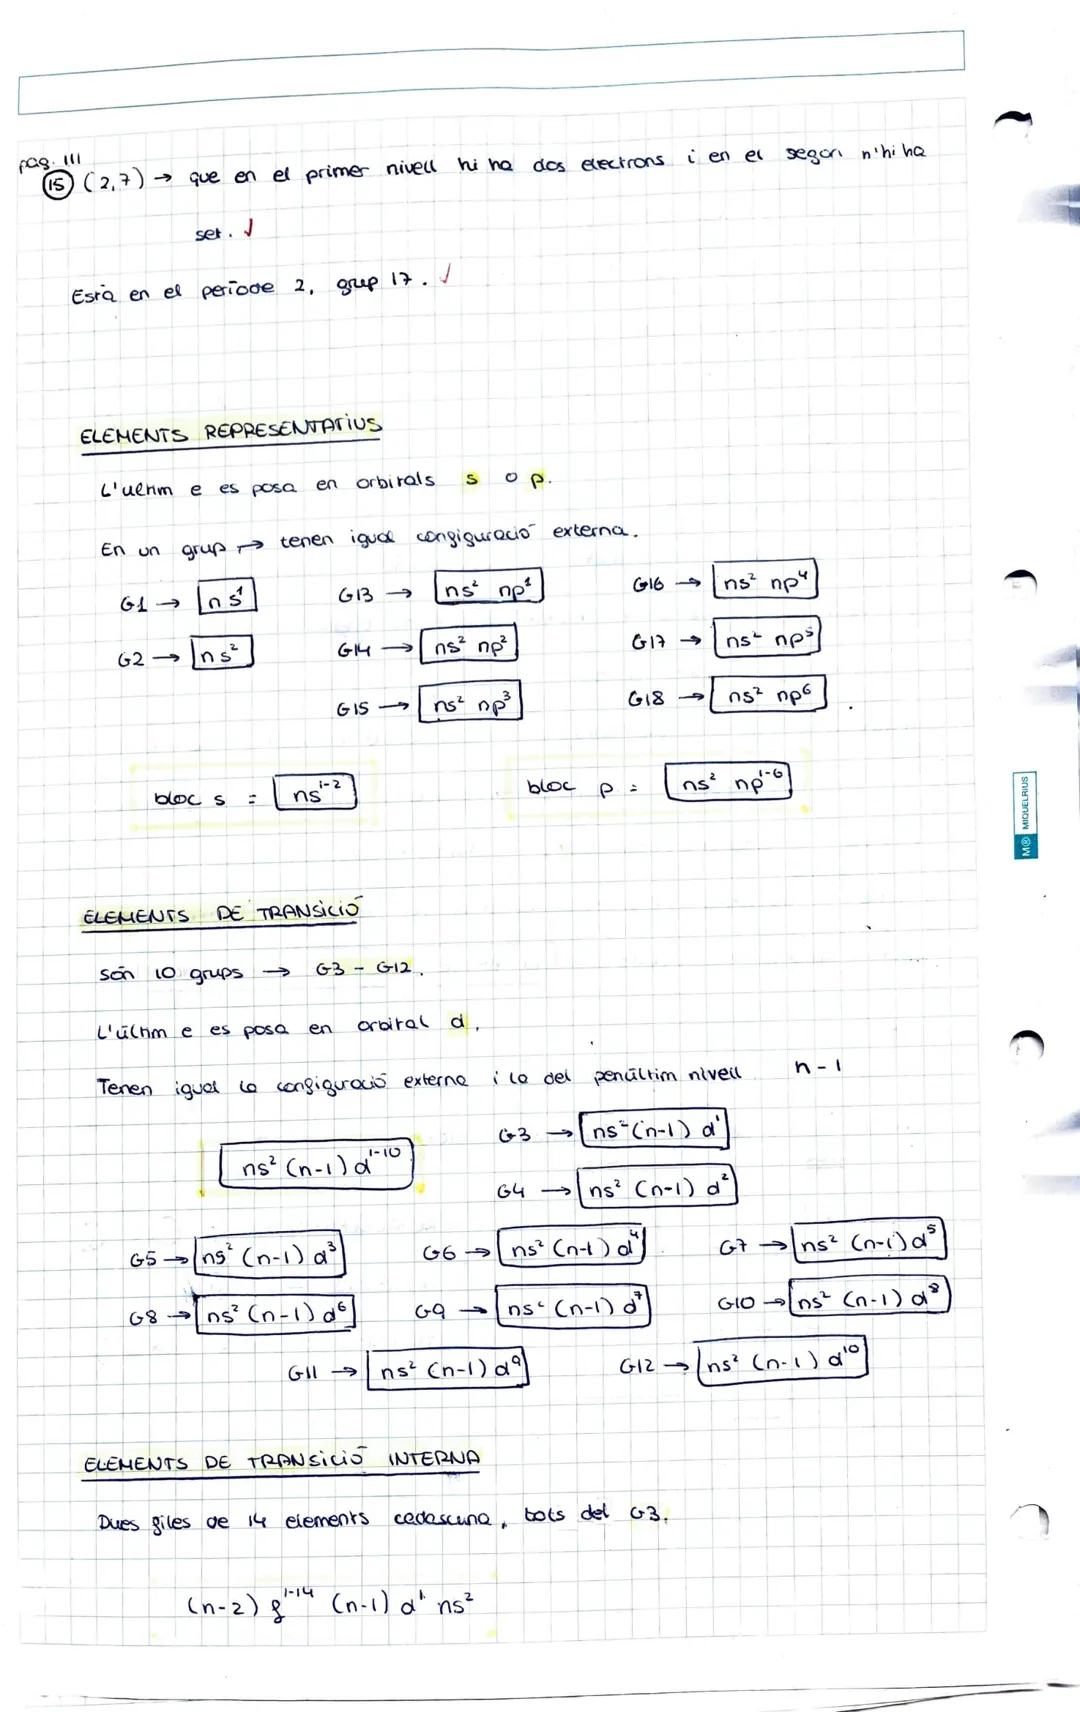 pag. 111
15 (2,7) → que en el primer nivell hi ha dos electrons i en el segon n'hi ha
set. ✓
Està en el període 2, grup 17. ✓
ELEMENTS REPRESENTATIUS
L'últim e es posa en orbitals s o p.
En un grup → tenen igual configuració externa.
G1 → ns¹
G13 → ns² np¹
G16 → ns² np⁴
G2 → ns²
G14 → ns² np²
G17 → ns² np⁵
G15 → ns² np³
G18 → ns² np⁶
bloc s = ns¹⁻²
bloc p = ns² np¹⁻⁶
ELEMENTS DE TRANSICIÓ
són 10 grups → G3 - G12.
L'últim e es posa en orbital d.
Tenen igual la configuració externa i la del penúltim nivell n-1
G3 → ns² (n-1) d¹
ns² (n-1) d¹⁻¹⁰
G4 → ns² (n-1) d²
G5 → ns² (n-1) d³
G6 → ns² (n-1) d⁴
G7 → ns² (n-1) d⁵
G8 → ns² (n-1) d⁶
G9 → ns² (n-1) d⁷
G10 → ns² (n-1) d⁸
G11 → ns² (n-1) d⁹
G12 → ns² (n-1) d¹⁰
ELEMENTS DE TRANSICIÓ INTERNA
Dues files de 14 elements cadascuna, tots del G3.
(n-2) f¹⁻¹⁴ (n-1) d¹ ns²
MIQUELRIUS